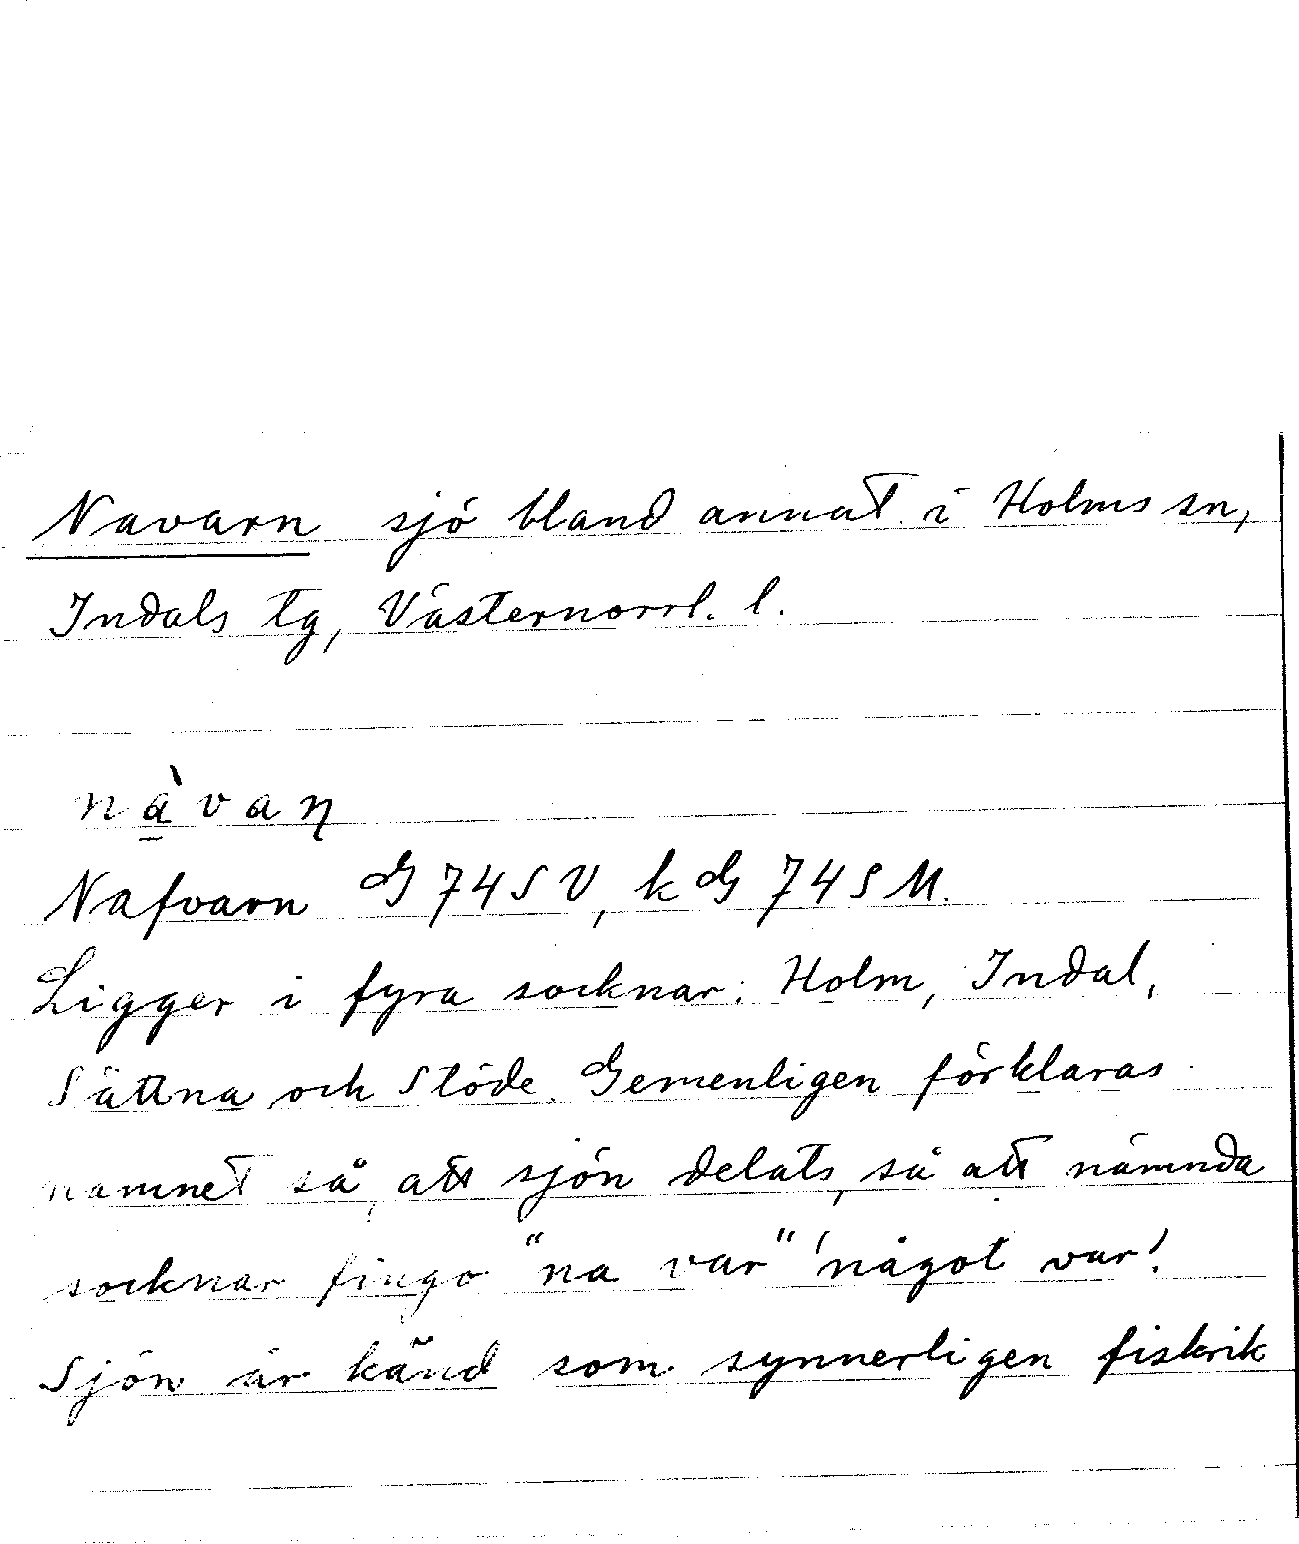 Navarn sjö bland annat i Holms sn,
Indals tg, Västernorrl. l.
nàvaꞃ
Nafvarn G 74 SV, k G 74 S M.
Ligger i fyra socknar: Holm, Indal,
Sättna och Stöde. Gemenligen förklaras
namnet så, att sjön delats, så att nämnda
socknar fingo "na var" 'något var'.
Sjön är känd som synnerligen fiskrik